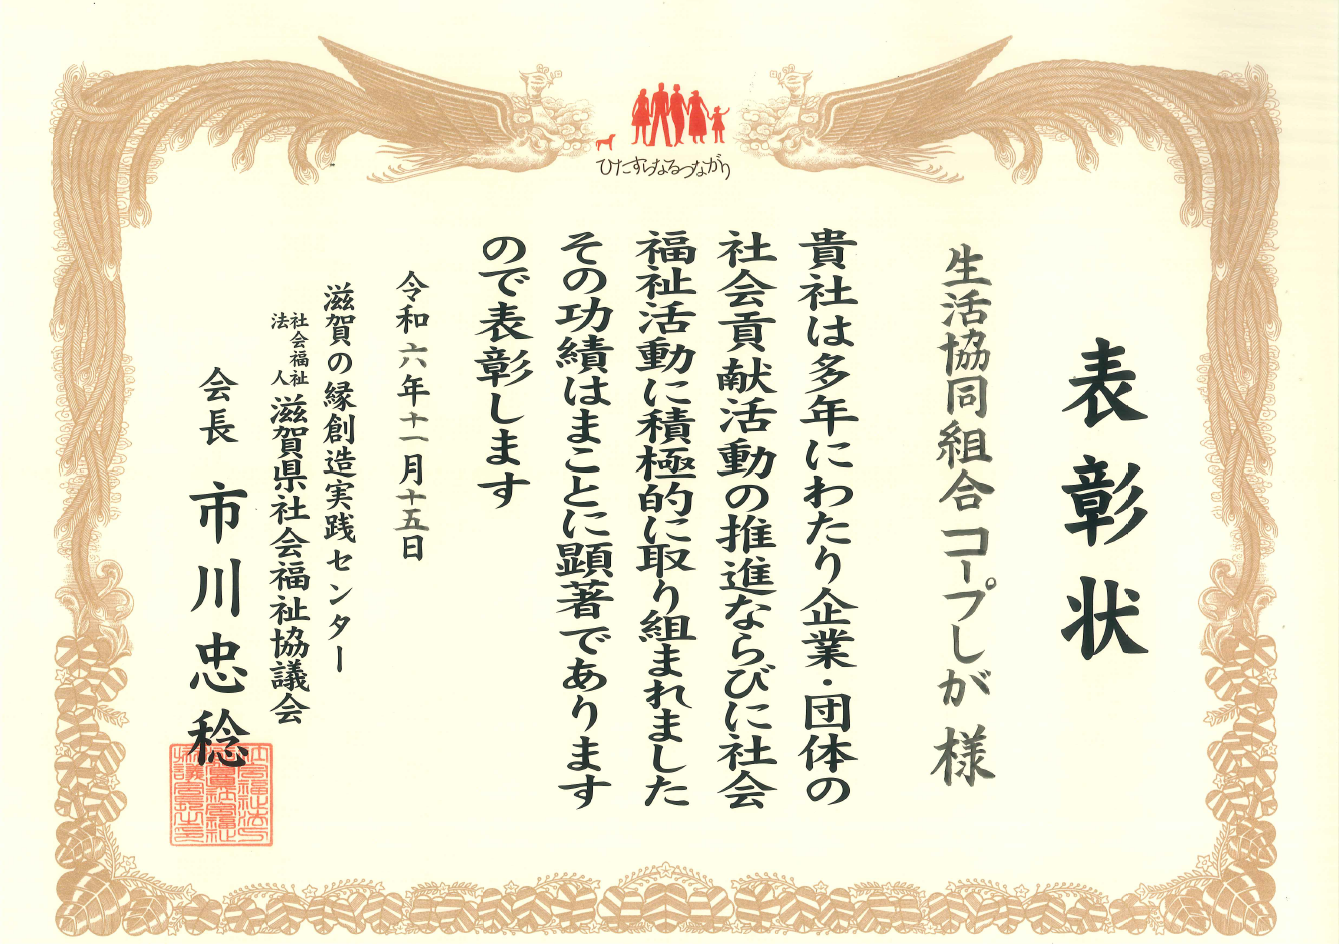 ひたすらなるつながり
表彰状
生活協同組合コープしが 様
貴社は多年にわたり企業・団体の
社会貢献活動の推進ならびに社会
福祉活動に積極的に取り組まれました
その功績はまことに顕著であります
ので表彰します
令和六年十一月十五日
滋賀の縁創造実践センター
社会福祉法人 滋賀県社会福祉協議会
会長 市川忠稔